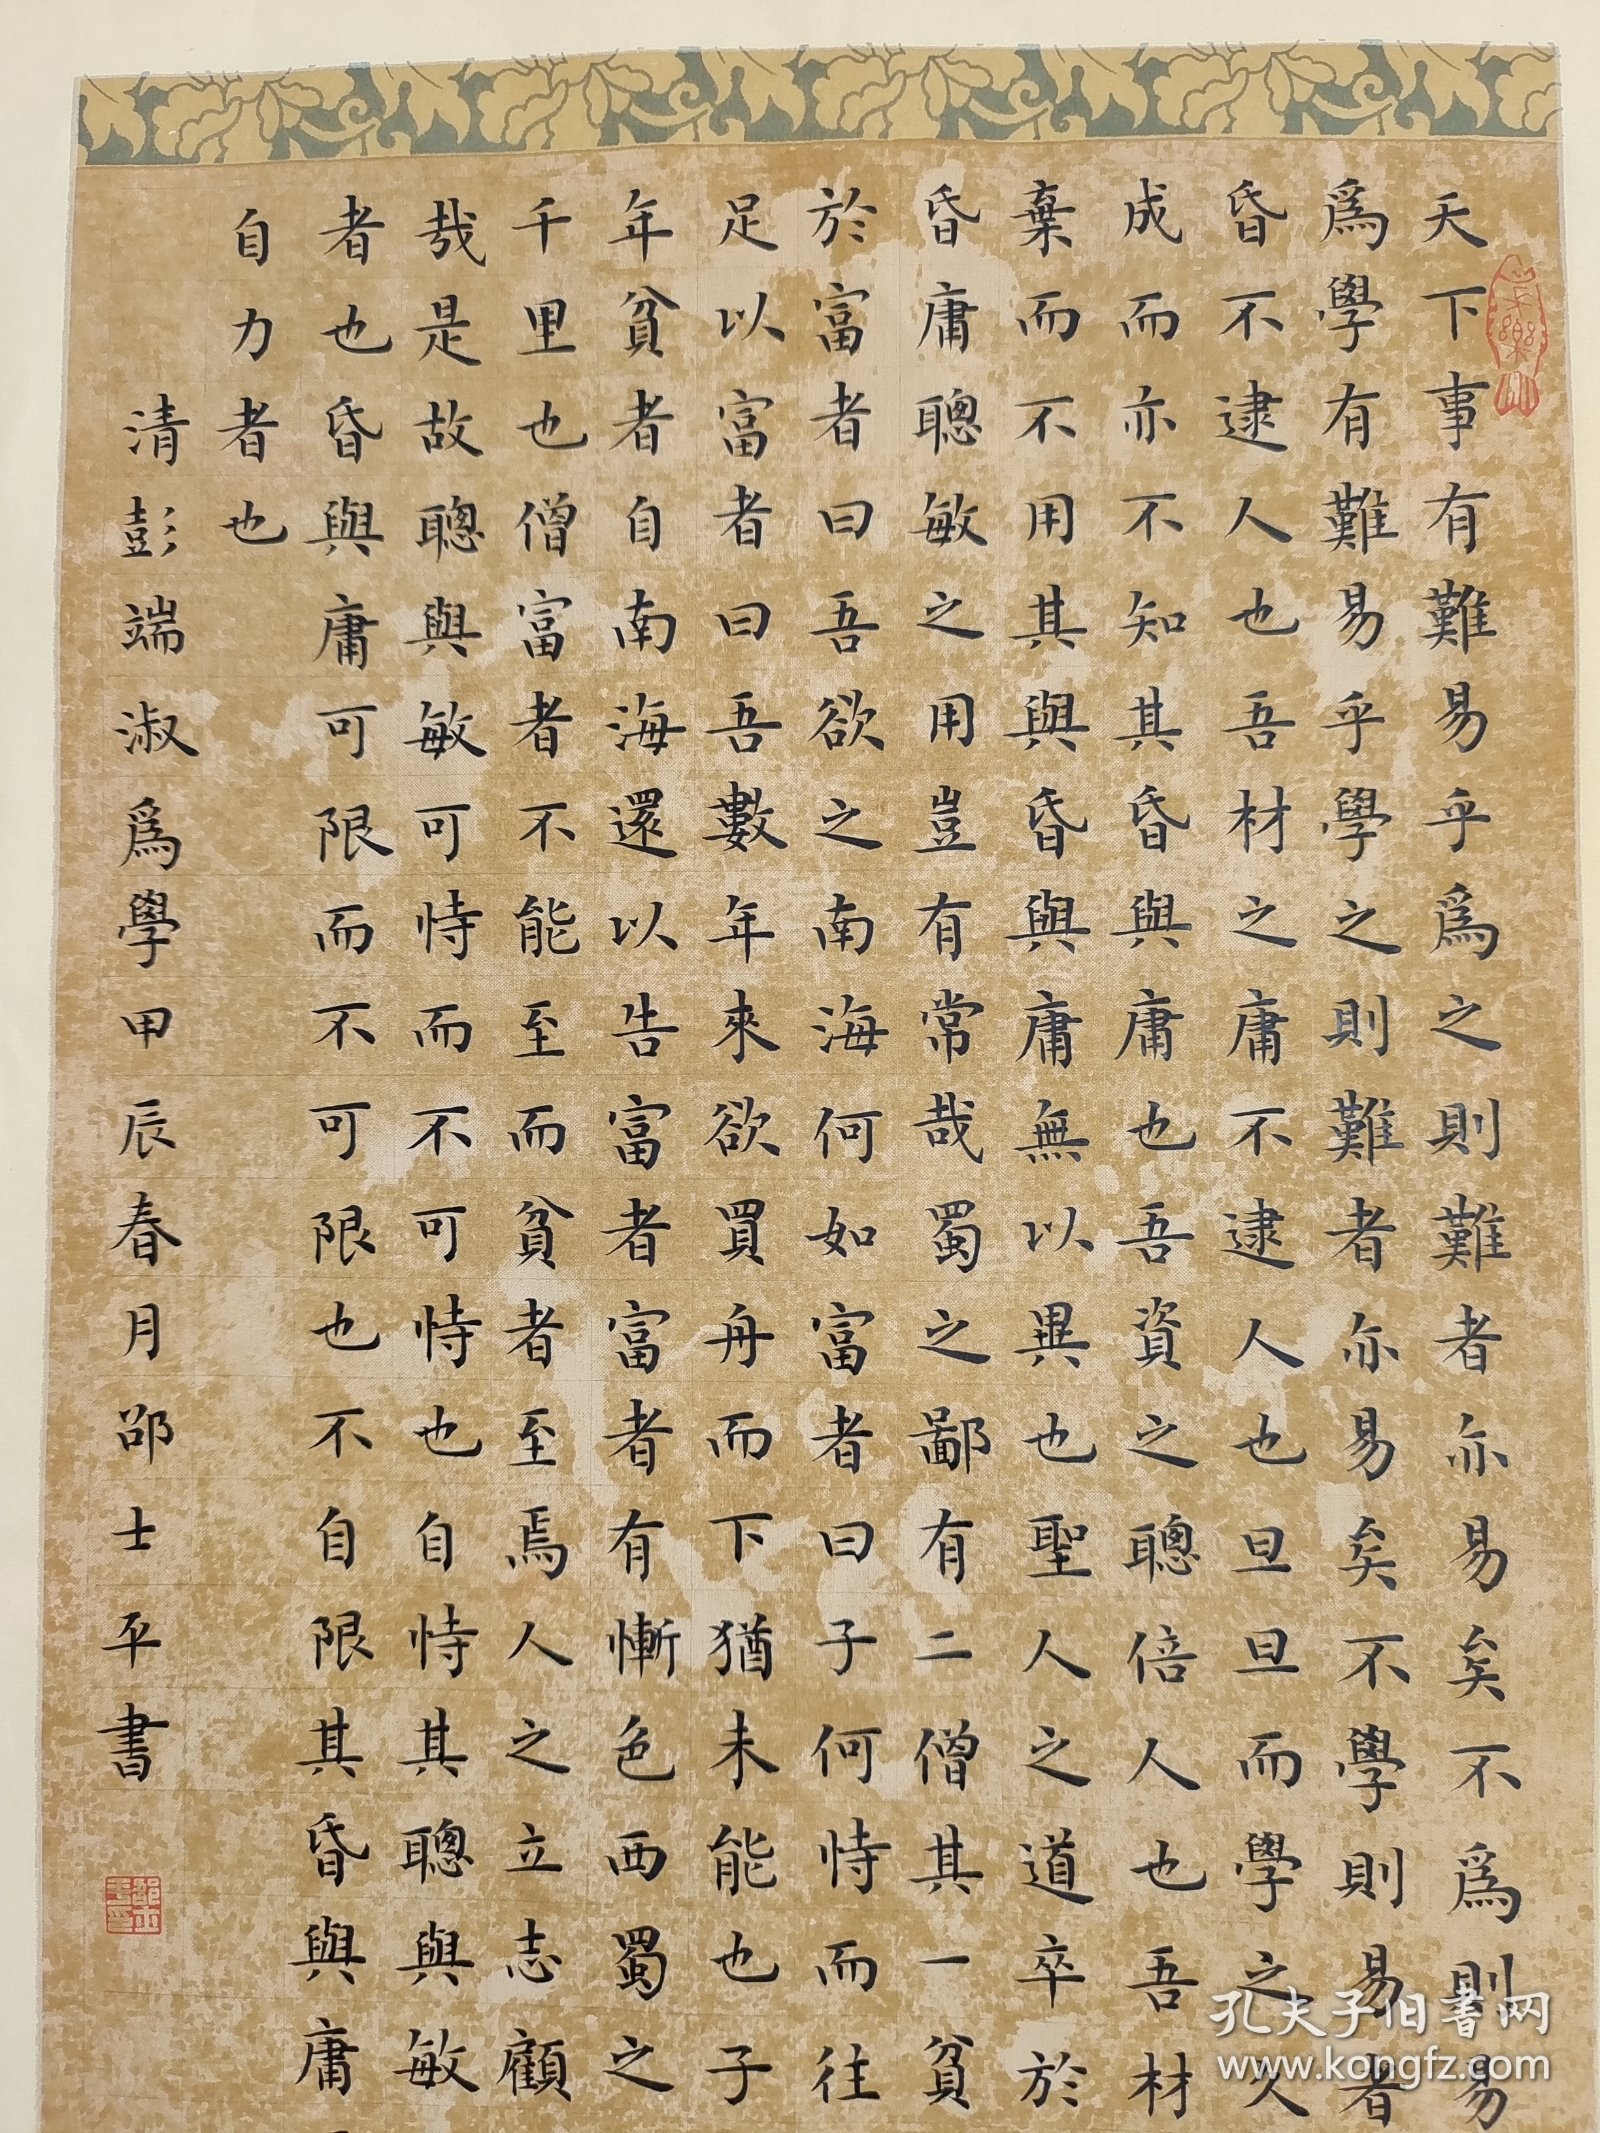 天下事有難易乎爲之則難者亦易矣不爲則易
爲學有難易乎學之則難者亦易矣不學則易者
昏不逮人也吾材之庸不逮人也旦旦而學之久
成而亦不知其昏與庸也吾資之聰倍人也吾材
棄而不用其與昏與庸無以異也聖人之道卒於
昏庸聰敏之用豈有常哉蜀之鄙有二僧其一貧
於富者曰吾欲之南海何如富者曰子何恃而往
足以富者曰吾數年來欲買舟而下猶未能也子
年貧者自南海還以告富者富者有慚色西蜀之
千里也僧富者不能至而貧者至焉人之立志顧
哉是故聰與敏可恃而不可恃也自恃其聰與敏
者也昏與庸可限而不可限也不自限其昏與庸
自力者也
清彭端淑爲學甲辰春月邵士平書
孔夫子旧书网
www.kongfz.com